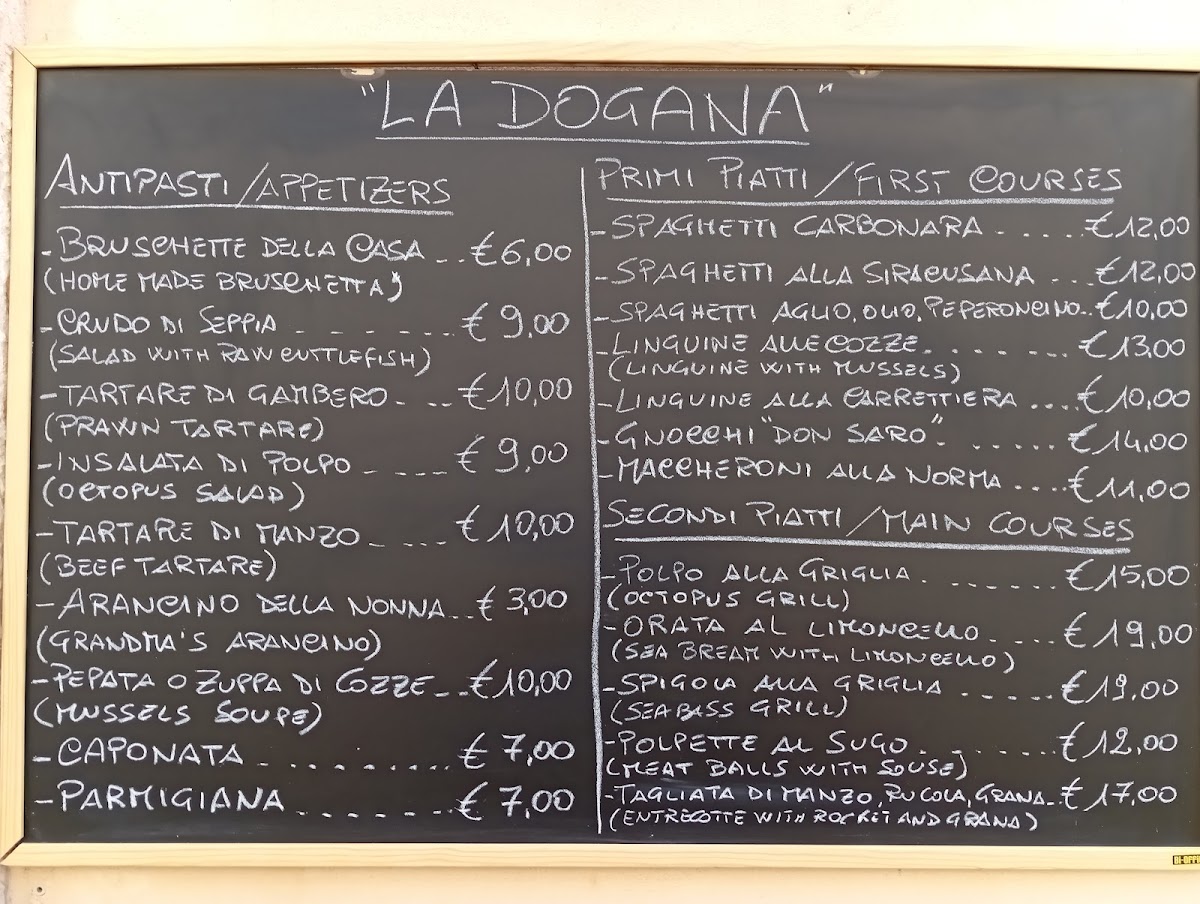 "LA DOGANA"
ANTIPASTI/APPETIZERS
-BRUSCHETTE DELLA CASA...€6,00
(HOME MADE BRUSCHETTA)
-CRUDO DI SEPPIA - - - - - - - € 9,00
(SALAD WITH RAW CUTTLEFISH)
-TARTARE DI GAMBERO- - - -€10,00
(PRAWN TARTARE)
-INSALATA DI POLPO - - - - - € 9,00
(OCTOPUS SALAD)
-TARTARE DI MANZO - - - - €10,00
(BEEF TARTARE)
-ARANCINO DELLA NONNA...€ 3,00
(GRANDMA'S ARANCINO)
-PEPATA O ZUPPA DI COZZE...€10,00
(MUSSELS SOUPE)
-CAPONATA . . . . . . . . . . € 7,00
-PARMIGIANA . . . . . . € 7,00
PRIMI PIATTI/FIRST COURSES
-SPAGHETTI CARBONARA - . . . .€12,00
-SPAGHETTI ALLA SIRACUSANA ...€12,00
-SPAGHETTI AGLIO, OLIO, PEPERONCINO..€10,00
-LINGUINE ALLE COZZE. . . . . ...€13,00
(LINGUINE WITH MUSSELS)
-LINGUINE ALLA CARRETTIERA ....€10,00
-GNOCCHI "DON SARO". . . . . . €14,00
-MACCHERONI ALLA NORMA ....€11,00
SECONDI PIATTI/MAIN COURSES
-POLPO ALLA GRIGLIA. . . . . . . .€15,00
(OCTOPUS GRILL)
-ORATA AL LIMONCELLO. . . . .€19,00
(SEA BREAM WITH LIMONCELLO)
-SPIGOLA ALLA GRIGLIA . . . . . €19,00
(SEABASS GRILL)
-POLPETTE AL SUGO. . . . . . . .€12,00
(MEAT BALLS WITH SOUSE)
-TAGLIATA DI MANZO, RUCOLA, GRANA..€17,00
(ENTRECOTTE WITH ROCKET AND GRANA)